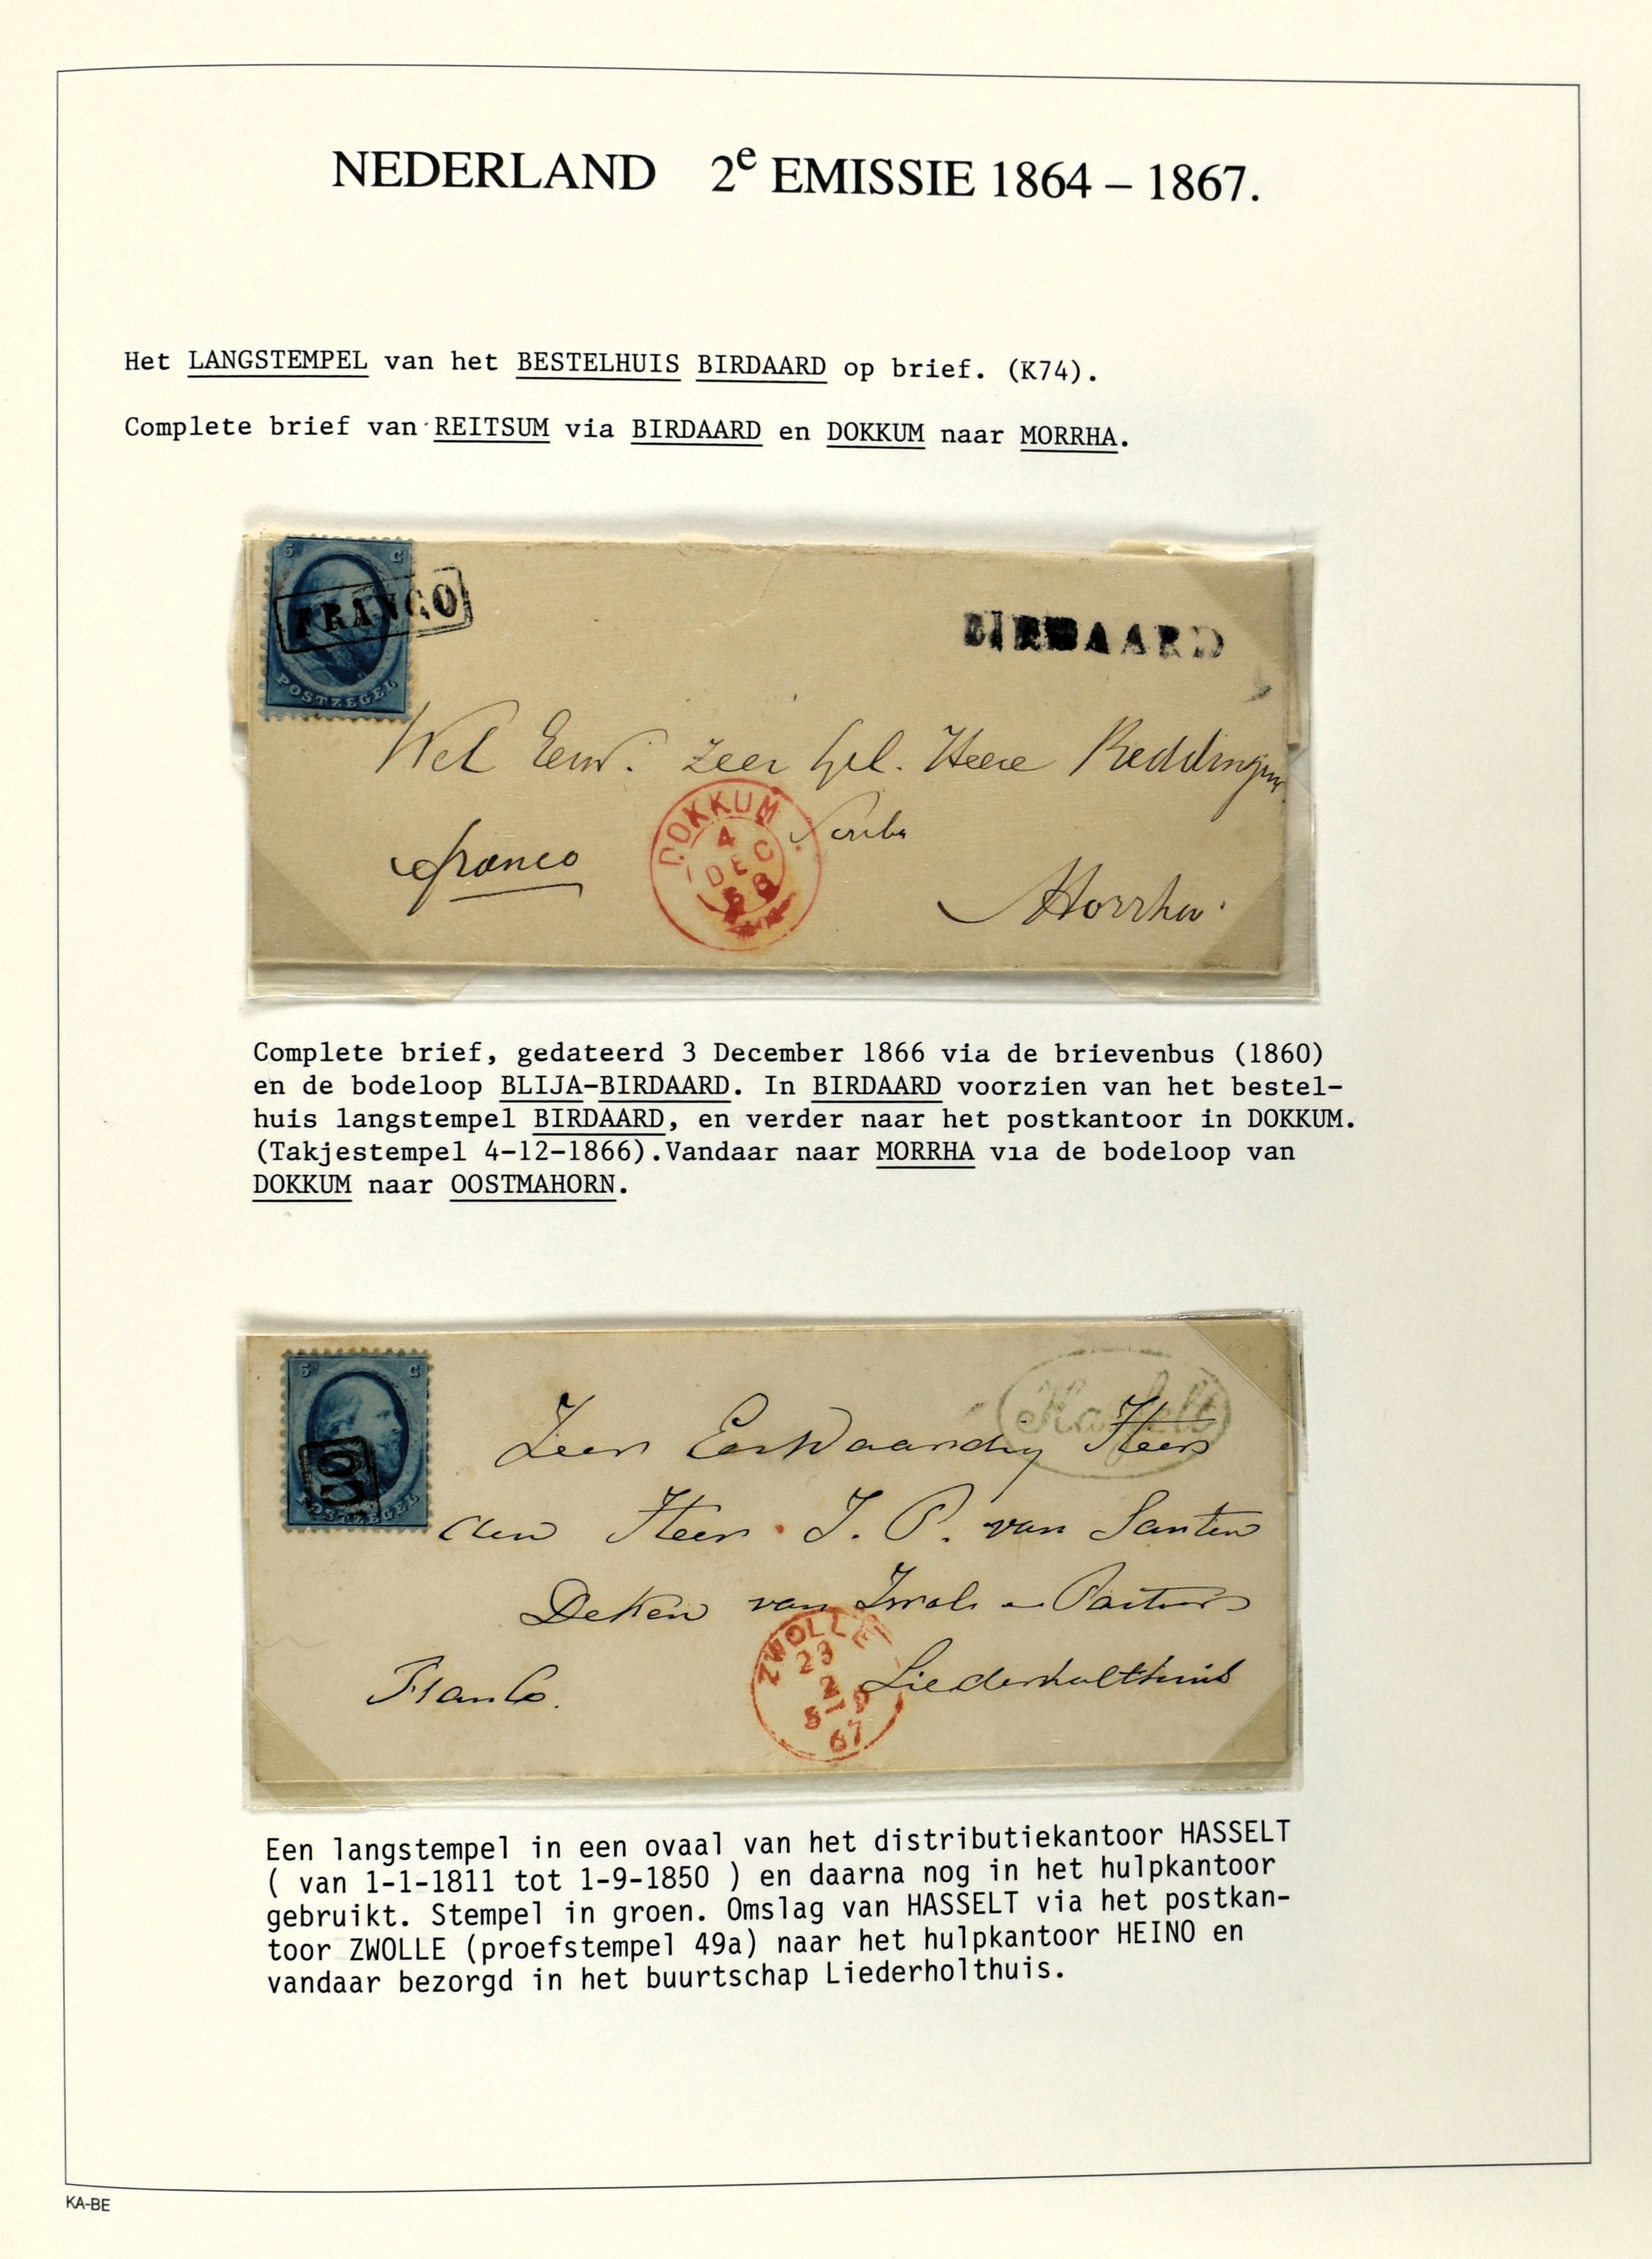 NEDERLAND 2e EMISSIE 1864 – 1867.
Het LANGSTEMPEL van het BESTELHUIS BIRDAARD op brief. (K74).
Complete brief van REITSUM via BIRDAARD en DOKKUM naar MORRHA.
5 C
FRANCO
POSTZEGEL
BIRDAARD
Wel Eerw. Zeer Gel. Heere Reddingius
Scriba
franco
DOKKUM
4
DEC
66
Morrha.
Complete brief, gedateerd 3 December 1866 via de brievenbus (1860)
en de bodeloop BLIJA-BIRDAARD. In BIRDAARD voorzien van het bestel-
huis langstempel BIRDAARD, en verder naar het postkantoor in DOKKUM.
(Takjestempel 4-12-1866).Vandaar naar MORRHA via de bodeloop van
DOKKUM naar OOSTMAHORN.
5 C
POSTZEGEL
Hasselt
Zeer Eerwaarde Heer
den Heer J. P. van Santen
Deken van Zwolle en Pastoor
Liederholthuis
Franco.
ZWOLLE
23
2
67
Een langstempel in een ovaal van het distributiekantoor HASSELT
( van 1-1-1811 tot 1-9-1850 ) en daarna nog in het hulpkantoor
gebruikt. Stempel in groen. Omslag van HASSELT via het postkan-
toor ZWOLLE (proefstempel 49a) naar het hulpkantoor HEINO en
vandaar bezorgd in het buurtschap Liederholthuis.
KA-BE